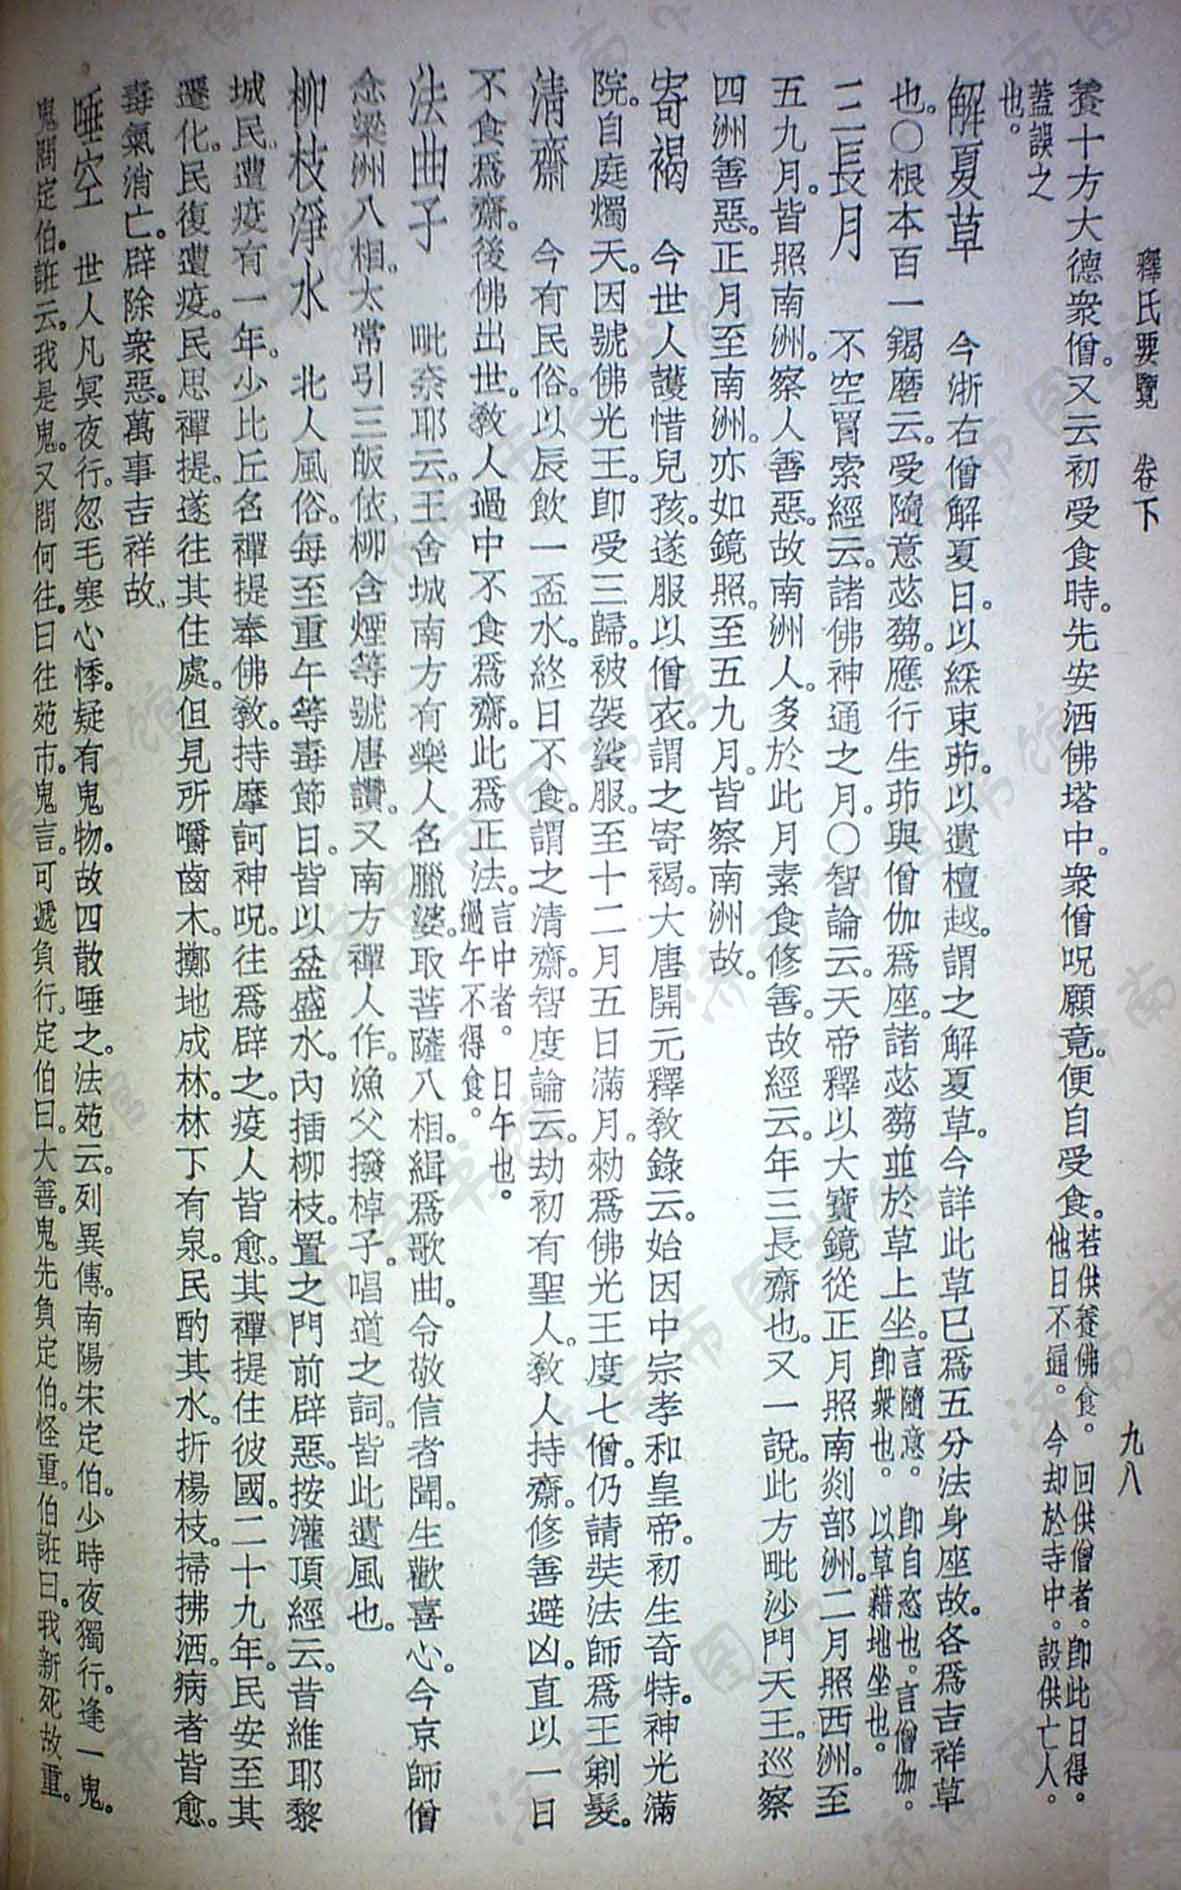 釋氏要覽　卷下
九八
養十方大德衆僧。又云初受食時。先安洒佛塔中。衆僧呪願竟。便自受食。若供養佛食。回供僧者。卽此日得。他日不通。今却於寺中。設供亡人。
蓋誤之也。
解夏草　今浙右僧解夏日。以綵束茆。以遺檀越。謂之解夏草。今詳此草已爲五分法身座故。各爲吉祥草
也。〇根本百一羯磨云。受隨意苾芻。應行生茆與僧伽爲座。諸苾芻並於草上坐。言隨意。卽自恣也。言僧伽。卽衆也。以草藉地坐也。
三長月　不空罥索經云。諸佛神通之月。〇智論云。天帝釋以大寶鏡從正月照南剡部洲。二月照西洲。至
五九月。皆照南洲。察人善惡。故南洲人。多於此月素食修善。故經云。年三長齋也。又一說。此方毗沙門天王。巡察
四洲善惡。正月至南洲。亦如鏡照。至五九月。皆察南洲故。
寄褐　今世人護惜兒孩。遂服以僧衣。謂之寄褐。大唐開元釋教錄云。始因中宗孝和皇帝。初生奇特。神光滿
院。自庭燭天。因號佛光王。卽受三歸。被袈裟服。至十二月五日滿月。勑爲佛光王度七僧。仍請奘法師爲王剃髮。
淸齋　今有民俗。以辰飲一盃水。終日不食。謂之淸齋。智度論云。劫初有聖人。教人持齋。修善避凶。直以一日
不食爲齋。後佛出世。教人過中不食爲齋。此爲正法。言中者。日午也。過午不得食。
法曲子　毗奈耶云。王舍城南方有樂人名臘婆。取菩薩八相。緝爲歌曲。令敬信者聞。生歡喜心。今京師僧
念梁洲八相。太常引三皈依。柳含煙等號唐讚。又南方禪人作。漁父撥棹子。唱道之詞。皆此遺風也。
柳枝淨水　北人風俗。每至重午等毒節日。皆以盆盛水。內插柳枝。置之門前辟惡。按灌頂經云。昔維耶黎
城民。遭疫有一年。少比丘名禪提奉佛教。持摩訶神呪。往爲辟之。疫人皆愈。其禪提住彼國。二十九年。民安至其
遷化。民復遭疫。民思禪提。遂往其住處。但見所嚼齒木。擲地成林。林下有泉。民酌其水。折楊枝。掃拂洒。病者皆愈。
毒氣消亡。辟除衆惡。萬事吉祥故。
唾空　世人凡冥夜行。忽毛寒心悸。疑有鬼物。故四散唾之。法苑云。列異傳。南陽宋定伯。少時夜獨行。逢一鬼。
鬼問定伯。誑云。我是鬼。又問何往。曰往苑市。鬼言。可遞負行。定伯曰。大善。鬼先負定伯。怪重。伯誑曰。我新死故重。